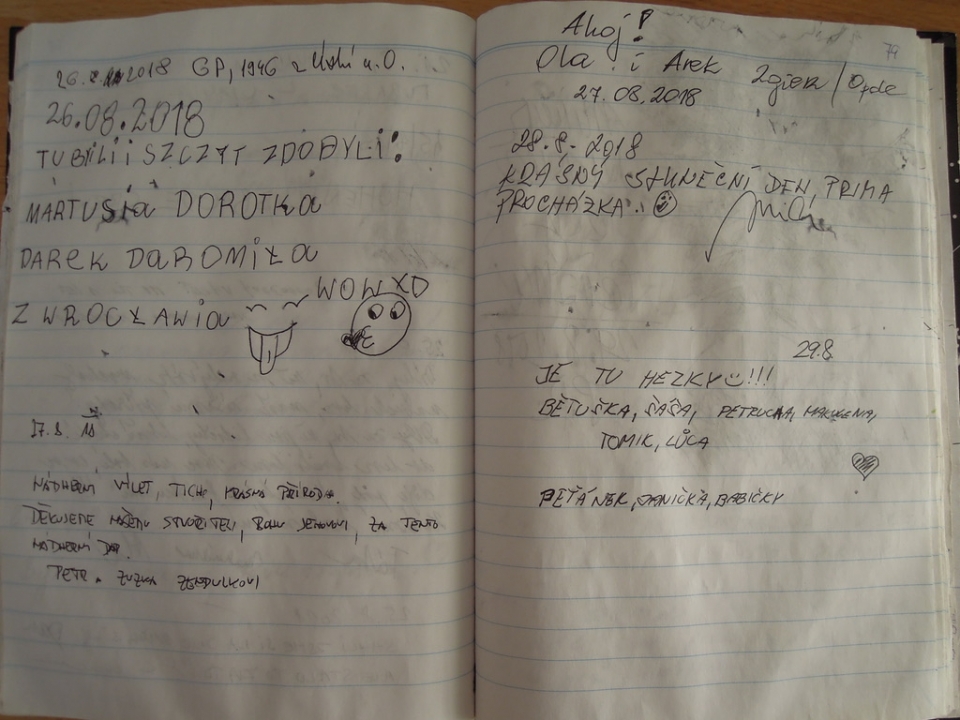 26. 2018 GP, 1946 z Ústí n. O.
26.08.2018
TU BYLI i SZCZYT ZDOBYLI:
MARTUSIA DOROTKA
DAREK DAROMIŁA
Z WROCŁAWIA
WOW XD
NÁDHERNÝ VÝLET, TICHO, KRÁSNÁ PŘÍRODA.
DĚKUJEME NAŠEMU STVOŘITELI, BOHU JEHOVOVI, ZA TENTO
NÁDHERNÝ DAR.
PETR A ZUZKA ZENDULKOVI
79
Ahoj!
Ola i Arek Zgierz /
27.08.2018
28.8. 2018
KRÁSNÝ SLUNEČNÍ DEN, PRIMA
PROCHÁZKA..
29.8
JE TU HEZKY !!!
BĚTUŠKA, SAŠA, PETRUCHA,
TOMIK, LŮCA
PEŤÁNEK, JANIČKA, BABIČKY